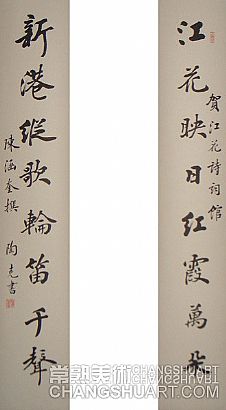 江花映日红霞萬朵
賀江花詩詞馆
新港縱歌輪笛千聲
陳涵奎撰 陶克書
常熟美術
CHANGSHUART
CHANGSHUART.COM